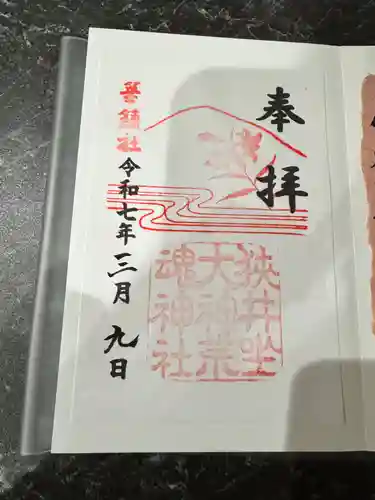 奉拝
狭井坐
大神荒
魂神社
華鎮社
令和七年三月九日